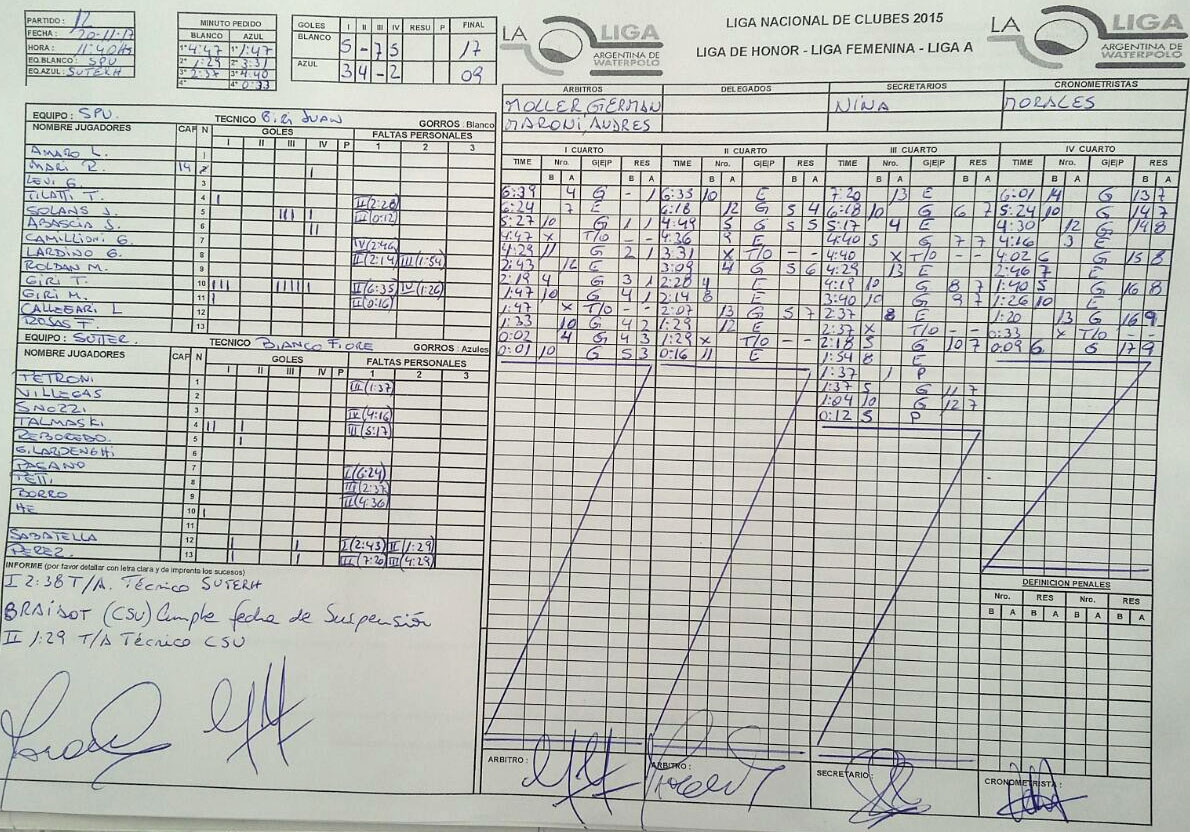 PARTIDO : 12
FECHA : 20-11-17
HORA : 11:40Hs
EQ.BLANCO : SPU
EQ.AZUL : SUTERH
MINUTO PEDIDO
BLANCO AZUL
1° 4:47 1° 1:47
2° 1:29 2° 3:31
3° 2:37 3° 4:40
4° 4° 0:33
GOLES I II III IV RESU P FINAL
BLANCO 5 - 7 5 17
AZUL 3 4 - 2 09
LA LIGA
ARGENTINA DE
WATERPOLO
LIGA NACIONAL DE CLUBES 2015
LIGA DE HONOR - LIGA FEMENINA - LIGA A
LA LIGA
ARGENTINA DE
WATERPOLO
ARBITROS DELEGADOS SECRETARIOS CRONOMETRISTAS
MOLLER GERMAN NINA MORALES
MARONI ANDRES
EQUIPO : SPU TECNICO JUAN GORROS : Blanco
NOMBRE JUGADORES CAP N GOLES FALTAS PERSONALES
I II III IV P 1 2 3
AMARO L. 1
MARI R. 14 2
LEVI G. 3
TILATTI T. 4 II (2:28)
SOLANS J. 5 III (0:12)
ABASCIA S. 6
CAMILLIONI G. 7 IV (2:46)
LARDINO G. 8 II (2:14) III (1:54)
ROLDAN M. 9
GIRI T. 10 II (6:35) IV (1:26)
GIRI M. 11 II (0:16)
CALLEGARI L 12
ROJAS F. 13
EQUIPO : SUTER. TECNICO BIANCO FIORE GORROS : Azules
NOMBRE JUGADORES CAP N GOLES FALTAS PERSONALES
I II III IV P 1 2 3
TETRONI 1 III (1:37)
VILLEGAS 2
SNOZZI 3 IV (4:16)
TALMASKI 4 III (5:17)
REBOREDO. 5
GILARDENGHI 6
PAGANO 7 I (6:24)
PETTI 8 III (2:37)
BORRO 9 II (4:36)
HE 10
11
SABATELLA 12 I (2:43) II (1:29)
PEREZ. 13 III (7:20) III (4:29)
INFORME (por favor detallar con letra clara y de imprenta los sucesos)
I 2:38 T/A. Técnico SUTERH
BRAIDOT (CSU) Cumple fecha de Suspensión
II 1:29 T/A Técnico CSU
I CUARTO
TIME Nro. G|E|P RES
B A B A
6:39 4 G - 1
6:24 7 E
5:27 10 G 1 1
4:47 x T/O - -
4:29 11 G 2 1
2:43 12 E
2:19 4 G 3 1
1:47 10 G 4 1
1:47 x T/O - -
1:33 10 G 4 2
0:02 4 G 4 3
0:01 10 G 5 3
II CUARTO
TIME Nro. G|E|P RES
B A B A
6:35 10 E
6:18 12 G 5 4
4:49 5 G 5 5
4:36 9 E
3:31 x T/O - -
3:09 4 G 5 6
2:28 4 E
2:14 8 E
2:07 13 G 5 7
1:29 12 E
1:29 x T/O - -
0:16 11 E
III CUARTO
TIME Nro. G|E|P RES
B A B A
7:20 13 E
6:18 10 G 6 7
5:17 4 E
4:40 5 G 7 7
4:40 x T/O - -
4:29 13 E
4:19 10 G 8 7
3:40 10 G 9 7
2:37 8 E
2:37 x T/O - -
2:18 5 G 10 7
1:54 8 E
1:37 1 P
1:37 5 G 11 7
1:04 10 G 12 7
0:12 5 P
IV CUARTO
TIME Nro. G|E|P RES
B A B A
6:01 14 G 13 7
5:24 10 G 14 7
4:30 12 G 14 8
4:16 3 E
4:02 6 G 15 8
2:46 7 E
1:40 5 G 16 8
1:26 10 E
1:20 13 G 16 9
0:33 x T/O - -
0:09 6 G 17 9
DEFINICION PENALES
Nro. RES Nro. RES
B A B A B A B A
ARBITRO :
ARBITRO :
SECRETARIO :
CRONOMETRISTA :